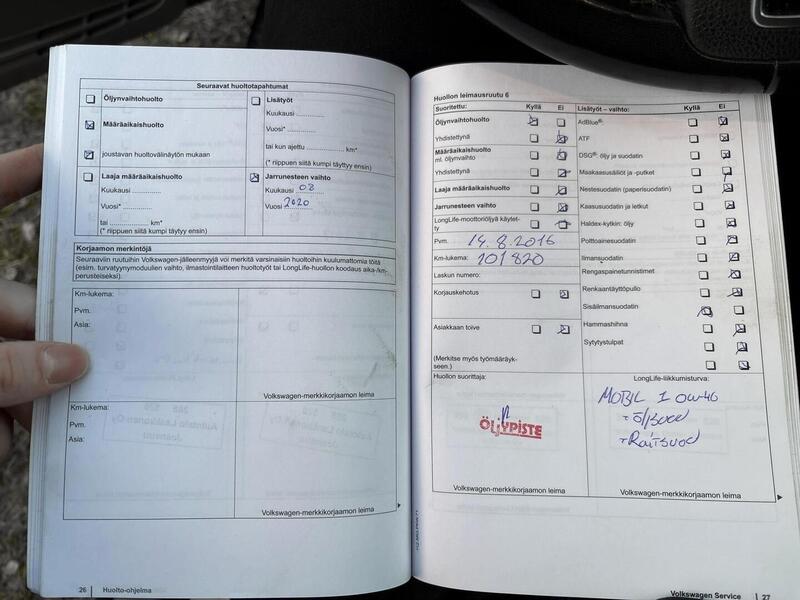 Seuraavat huoltotapahtumat
Öljynvaihtohuolto
Määräaikaishuolto
joustavan huoltovälinäytön mukaan
Lisätyöt
Kuukausi ..............
Vuosi* ..............
tai kun ajettu .............. km*
(* riippuen siitä kumpi täyttyy ensin)
Laaja määräaikaishuolto
Kuukausi ..............
Vuosi* ..............
tai .............. km*
(* riippuen siitä kumpi täyttyy ensin)
Jarrunesteen vaihto
Kuukausi 08
Vuosi 2020
Korjaamon merkintöjä
Seuraaviin ruutuihin Volkswagen-jälleenmyyjä voi merkitä varsinaisiin huoltoihin kuulumattomia töitä
(esim. turvatyynymoduulien vaihto, ilmastointilaitteen huoltotyöt tai LongLife-huollon koodaus aika-/km-
perusteiseksi).
Km-lukema:
Pvm.
Asia:
Volkswagen-merkkikorjaamon leima
Km-lukema:
Pvm.
Asia:
Volkswagen-merkkikorjaamon leima
26 Huolto-ohjelma
Huollon leimausruutu 6
Suoritettu: Kyllä Ei
Öljynvaihtohuolto
Yhdistettynä
Määräaikaishuolto
ml. öljynvaihto
Yhdistettynä
Laaja määräaikaishuolto
Jarrunesteen vaihto
LongLife-moottoriöljyä käytet-
ty
Pvm. 14.8.2016
Km-lukema: 101820
Laskun numero:
Korjauskehotus
Asiakkaan toive
(Merkitse myös työmääräyk-
seen.)
Huollon suorittaja:
ÖLJYPISTE
Volkswagen-merkkikorjaamon leima
Lisätyöt – vaihto: Kyllä Ei
AdBlue®:
ATF
DSG®: öljy ja suodatin
Maakaasusäiliöt ja -putket
Nestesuodatin (paperisuodatin)
Kaasusuodatin ja letkut
Haldex-kytkin: öljy
Polttoainesuodatin
Ilmansuodatin
Rengaspainetunnistimet
Renkaantäyttöpullo
Sisäilmansuodatin
Hammashihna
Sytytystulpat
LongLife-liikkumisturva:
MOBIL 1 0W40
+ ÖljSUOD
+ RaitSUOD
Volkswagen-merkkikorjaamon leima
Volkswagen Service 27